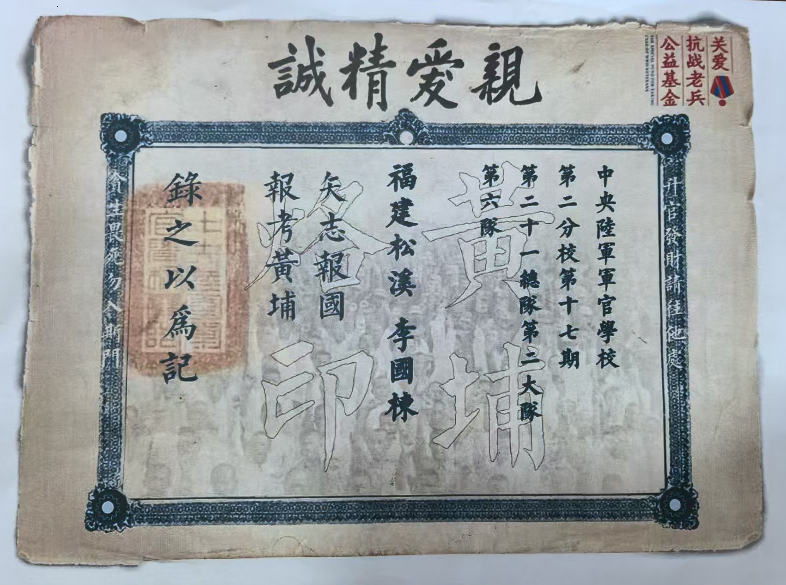 親愛精誠
关爱
抗战老兵
公益基金
升官發財請往他處
中央陸軍軍官學校
第二分校第十七期
第二十一總隊第二大隊
第六隊
黃埔
福建松溪 李國棟
矢志報國
報考黃埔
烙印
錄之以爲記
貪生畏死勿入斯門